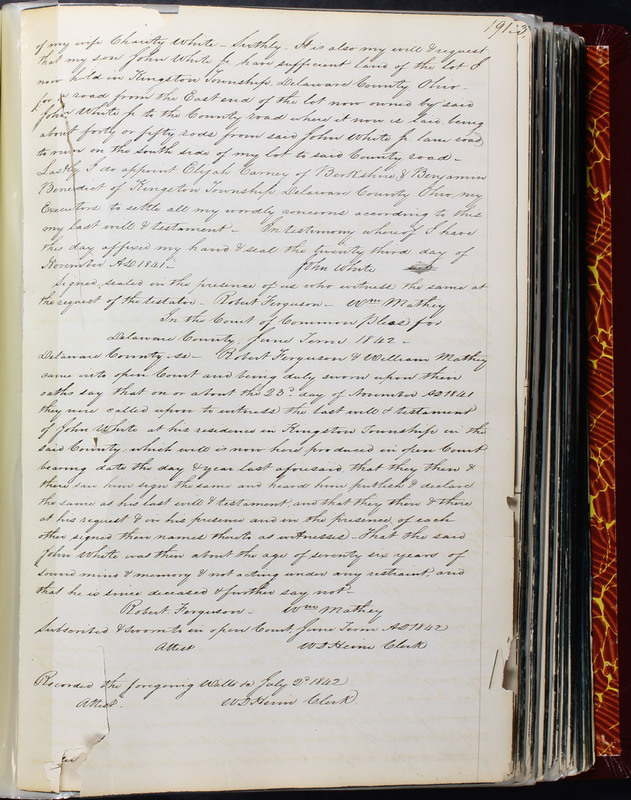 191
of my wife Charity White - Sixthly - It is also my will & request
that my son John White Jr have sufficient land of the lot I
now hold in Kingston Township, Delaware County Ohio -
for a road from the East end of the lot now owned by said
John White Jr to the County road where it now is laid being
about forty or fifty rods from said John White Jr lane road
to run on the South side of my lot to said County road -
Lastly I do appoint Elijah Carney of Berkshire, & Benjamin
Benedict of Kingston Township Delaware County Ohio, my
Executors to settle all my wordly concerns according to this
my last will & testament - In testimony whereof I have
this day affixed my hand & seal the twenty third day of
November AD 1841 - John White seal
Signed sealed in the presence of us who witness the same at
the request of the testator - Robert Ferguson - Wm Mathey
In the Court of Common Pleas for
Delaware County, June Term 1842 -
Delaware County ss - Robert Ferguson & William Mathey
came into open Court and being duly sworn upon their
oaths say that on or about the 23d day of November AD 1841
they were called upon to witness the last will & testament
of John White at his residence in Kingston Township in the
said County, which will is now here produced in open Court
bearing date the day & year last aforesaid that they then &
there saw him sign the same and heard him publish & declare
the same as his last will & testament, and that they then & there
at his request & in his presence and in the presence of each
other signed their names thereto as witnesses. That the said
John White was then about the age of seventy six years of
sound mind & memory & not acting under any restraint, and
that he is since deceased & further say not -
Robert Ferguson - Wm Mathey
Subscribed & sworn to in open Court, June Term AD 1842
Attest WD Heim Clerk
Recorded the foregoing Will on July 2d 1842
Attest. WD Heim Clerk